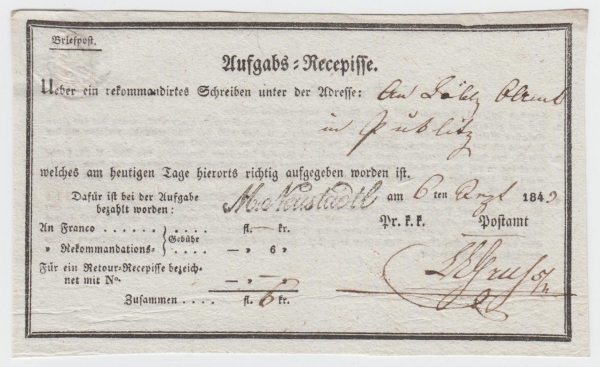 Briefpost.
Aufgabs-Recepisse.
Ueber ein rekommandirtes Schreiben unter der Adresse: An Löbl
in
welches am heutigen Tage hierorts richtig aufgegeben worden ist.
Dafür ist bei der Aufgabe bezahlt worden: M. Neustadtl am 6 ten 184
An Franco . . . . . . . . . . fl. — kr. Pr. k. k. Postamt
» Rekommandations- Gebühr — » 6 »
Für ein Retour-Recepisse bezeich-
net mit No. — » — »
Zusammen . . . . fl. 6 kr.